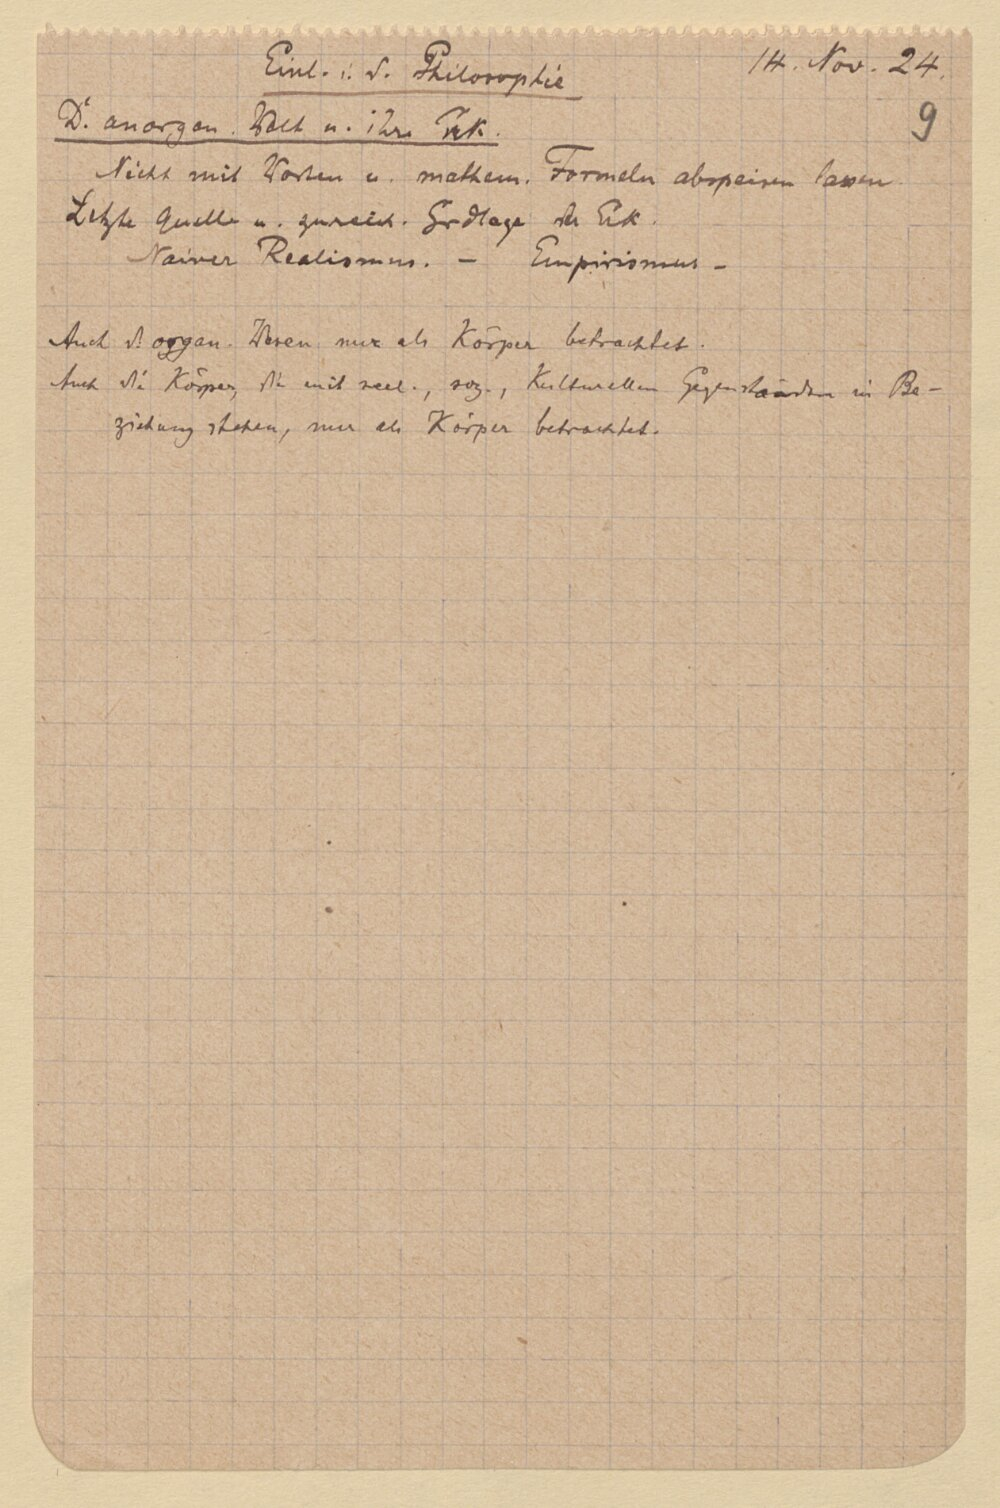 Einl. i. d. Philosophie 14. Nov. 24.
9
Di. anorgan. Welt u. ihre Erk.
Nicht mit Worten u. mathem. Formeln abspeisen lassen
Letzte Quelle u. zureich. Grdlage der Erk.
Naiver Realismus. – Empirismus –
Auch d. organ. Wesen nur als Körper betrachtet.
Auch die Körper, die mit seel., soz., Kulturellen Gegenständen in Be-
ziehung stehen, nur als Körper betrachtet.